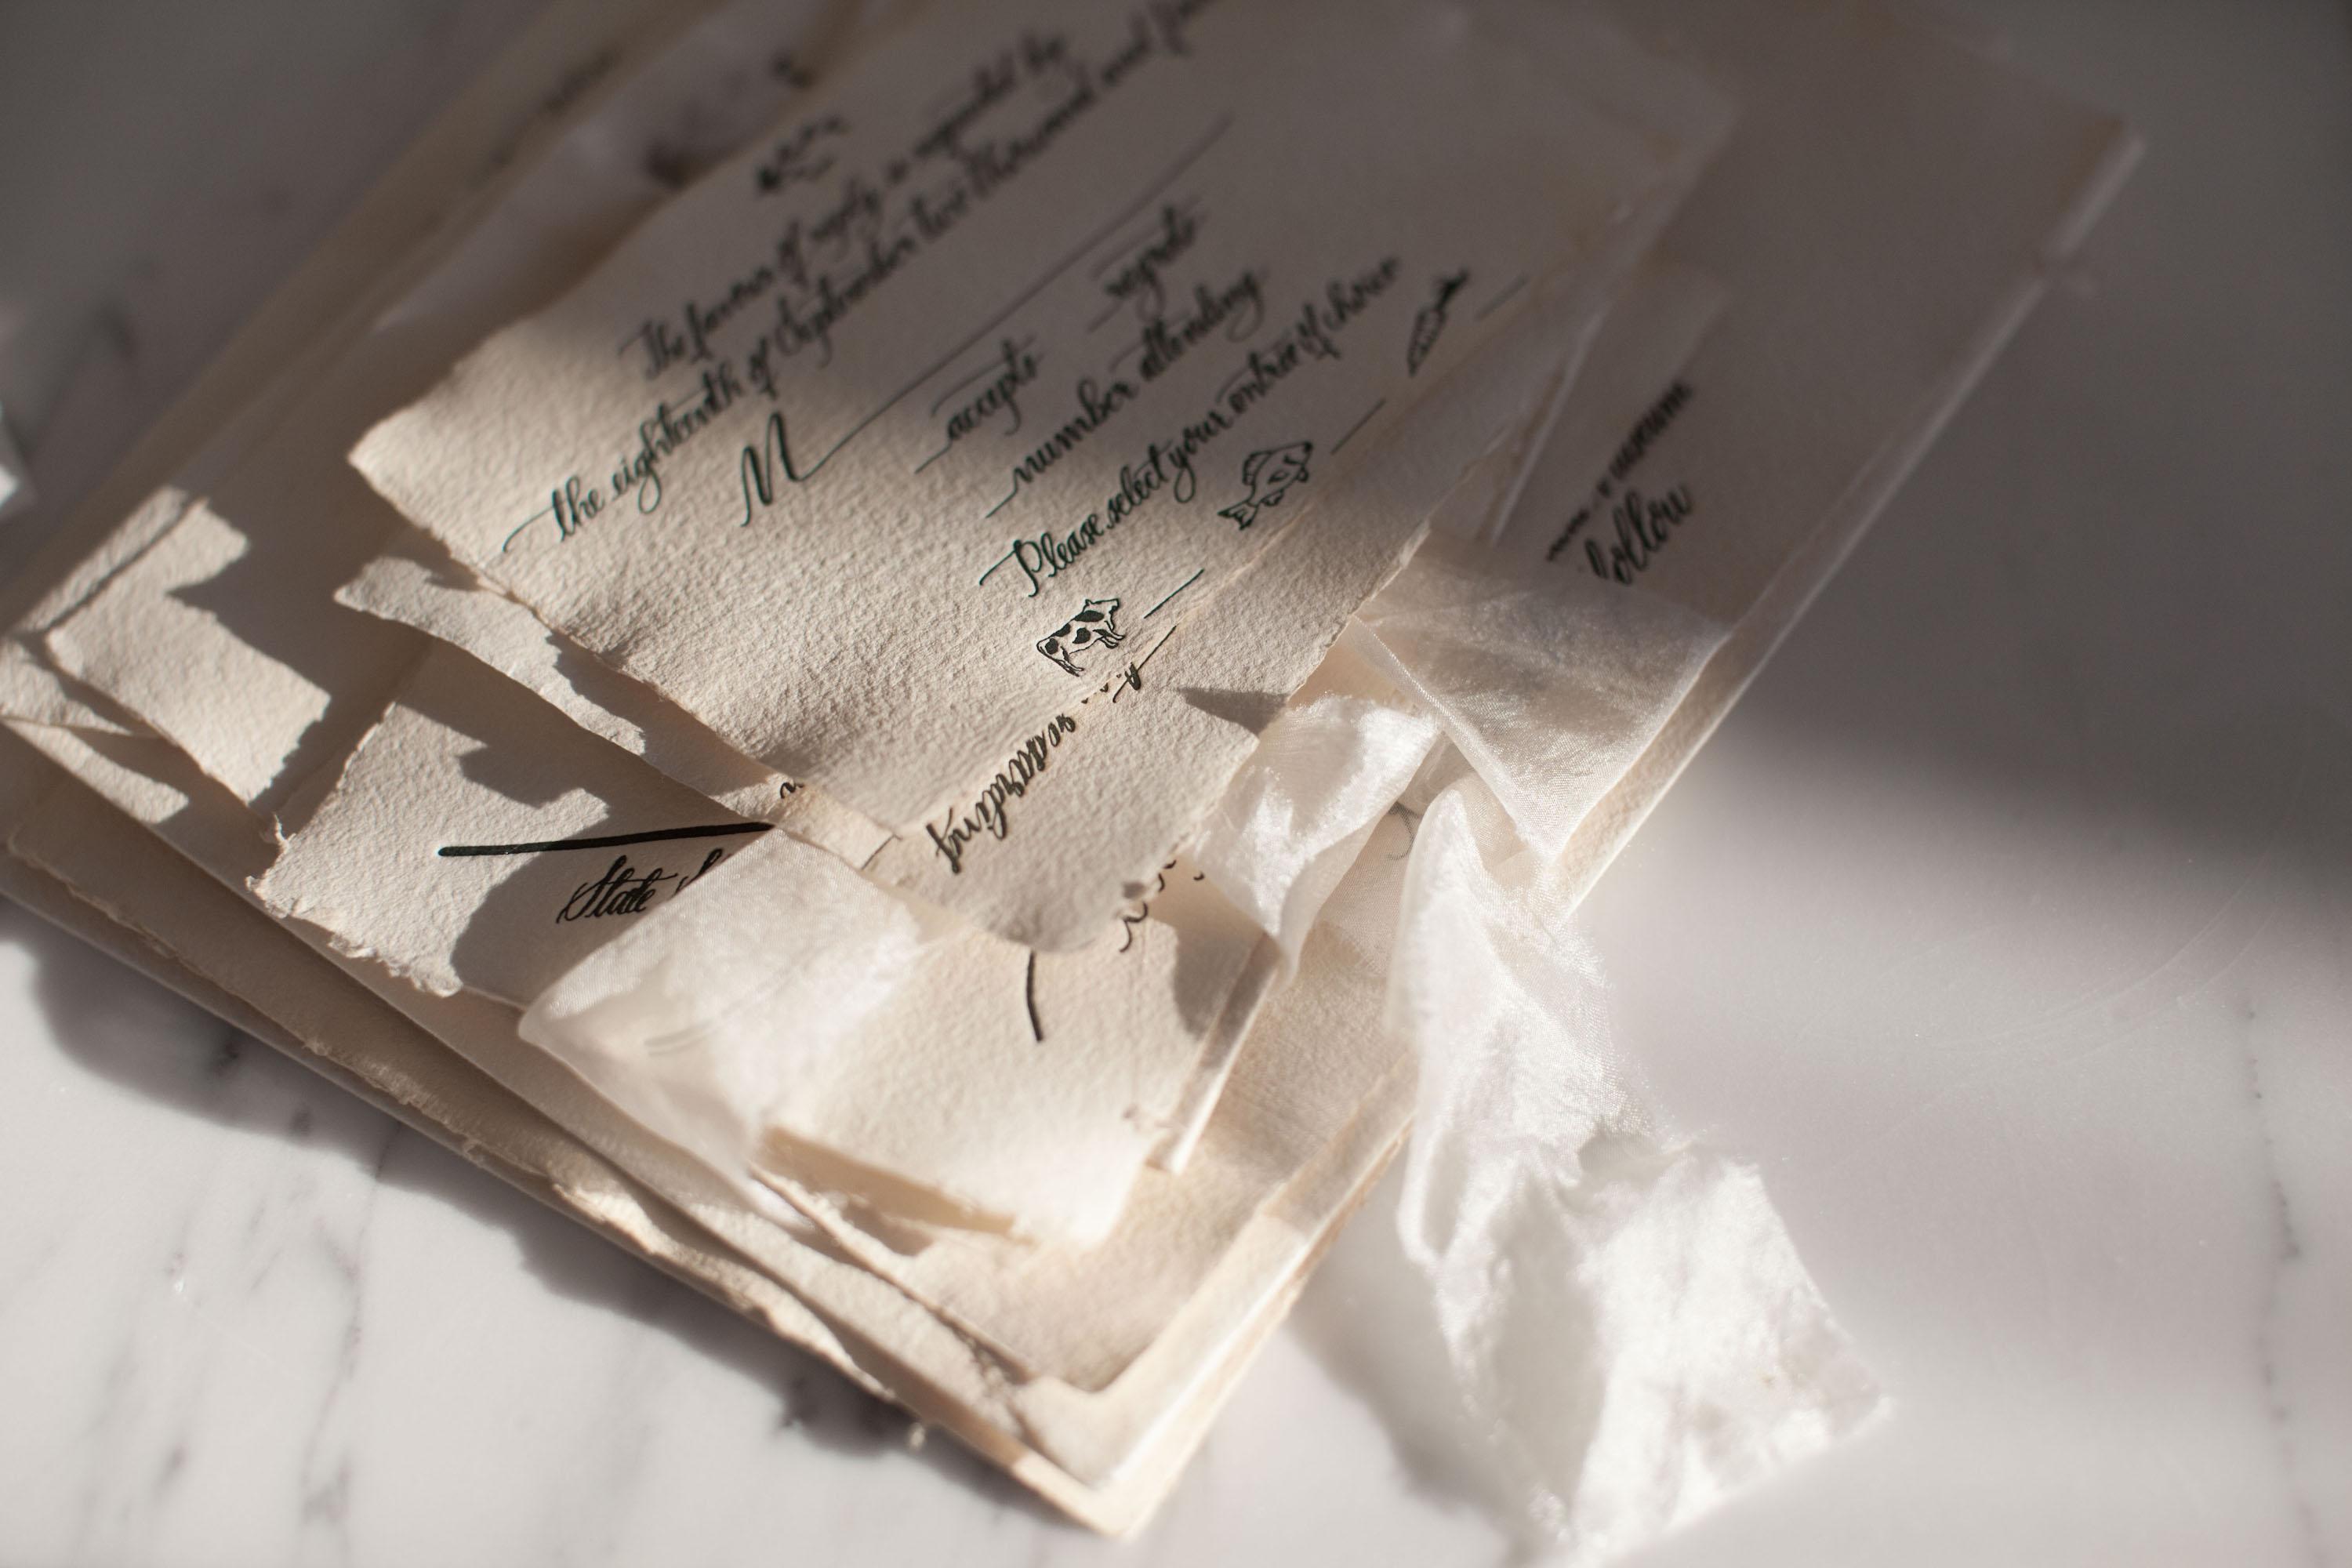 The favour of reply is requested by
the eighteenth of September two thousand and
M
accepts regrets
number attending
Please select your entrée of choice
follow
State